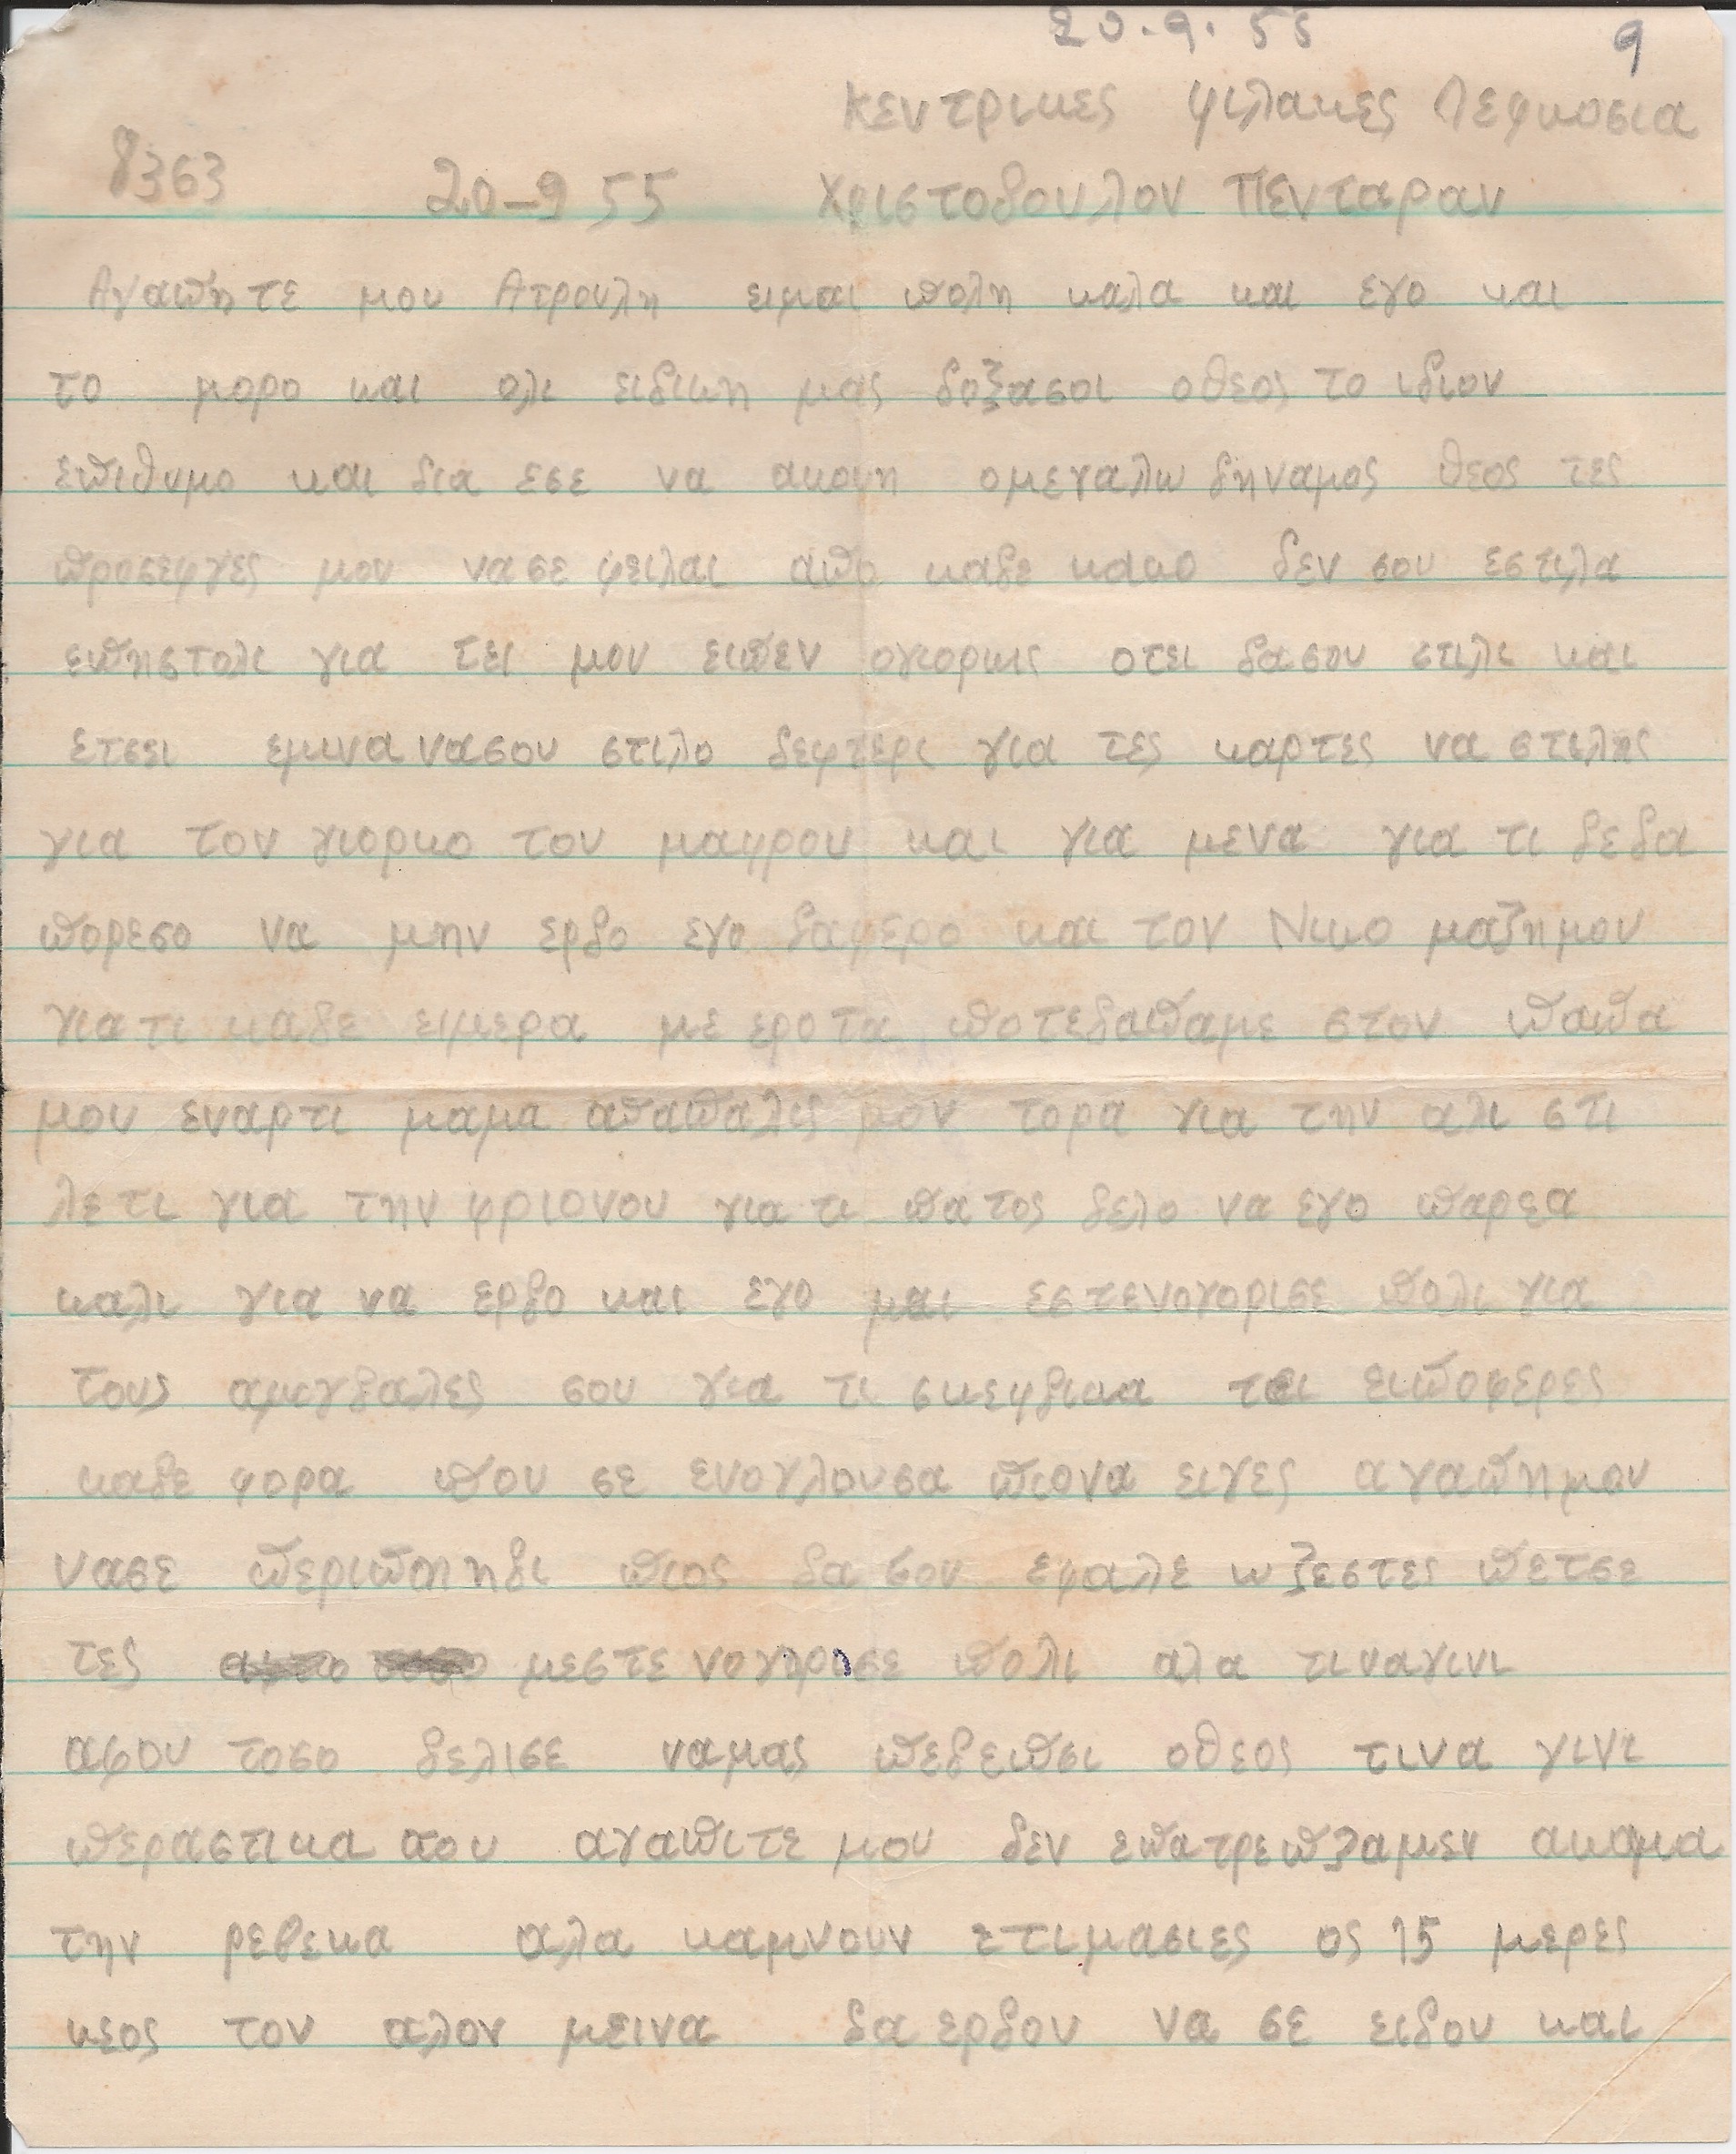 20.9.55 9
κεντρικες φιλακες Λεφκοσια
8363 20-9 55 Χριστοδουλου Πενταραν
Αγαπητε μου Ατρουλη ειμαι πολη καλα και εγο και
το μορο και ολι ειδικη μας δοξασοι οθεος το ιδιον
επιθυμο και δια εσε να ακουη ομεγαλω δηναμος θεος τες
προσεφχες μου νασε φειλαι απο καθε κακο δεν σου εστιλα
επηστολι για τει μου ειπεν ογιορκις οτει θασου στιλι και
ετσει εμινα νασου στιλο δεφτερι για τες καρτες να στιλης
για τον γιορκο του μαφρου και για μενα για τι δεθα
πορεσο να μην ερθο εγο θαφερο και τον Νικο μαζημου
γιατι καθε ειμερα με εροτα ποτεθαπαμε στον παπα
μου εναρτι μαμα απαπαλις μου τορα για την αλι στι
λετι για την φριονου για τι πατος θελο να εχο παρεα
καλι για να ερθο και εγο μαι εστενοχορισε πολι για
τους αμιγδαλες σου για τι σκεφθικα τει ειποφερες
καθε φορα που σε ενοχλουσα πιονα ειχες αγαπημου
νασε περιποιηθι πιος θα σου εφαλε κ ζεστες πετσε
τες μεστε νοχορισε πολι αλα τιναγινι
αφου τοσο θελισε ναμας πεδεπσι οθεος τινα γινι
περαστικα σου αγαπιτε μου δεν επατρεπσαμεν ακομα
την ρεβεκα αλα καμνουν ετιμασιες ος 15 μερες
κεος τον αλον μεινα θα ερθου να σε ειδου και